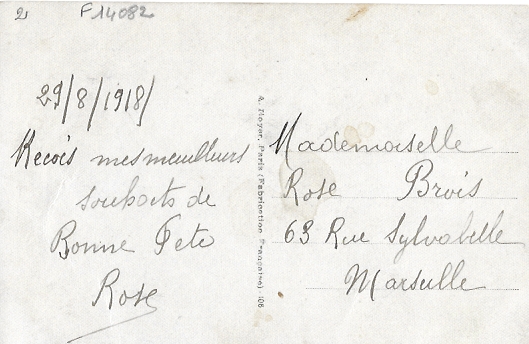 2 F14082
29/8/1918/
Recois mes meilleurs
souhaits de
Bonne Fete
Rose
A. Noyer, Paris (Fabrication Française) - 106
Mademoiselle
Rose Brois
63 Rue Sylvabelle
Marseille